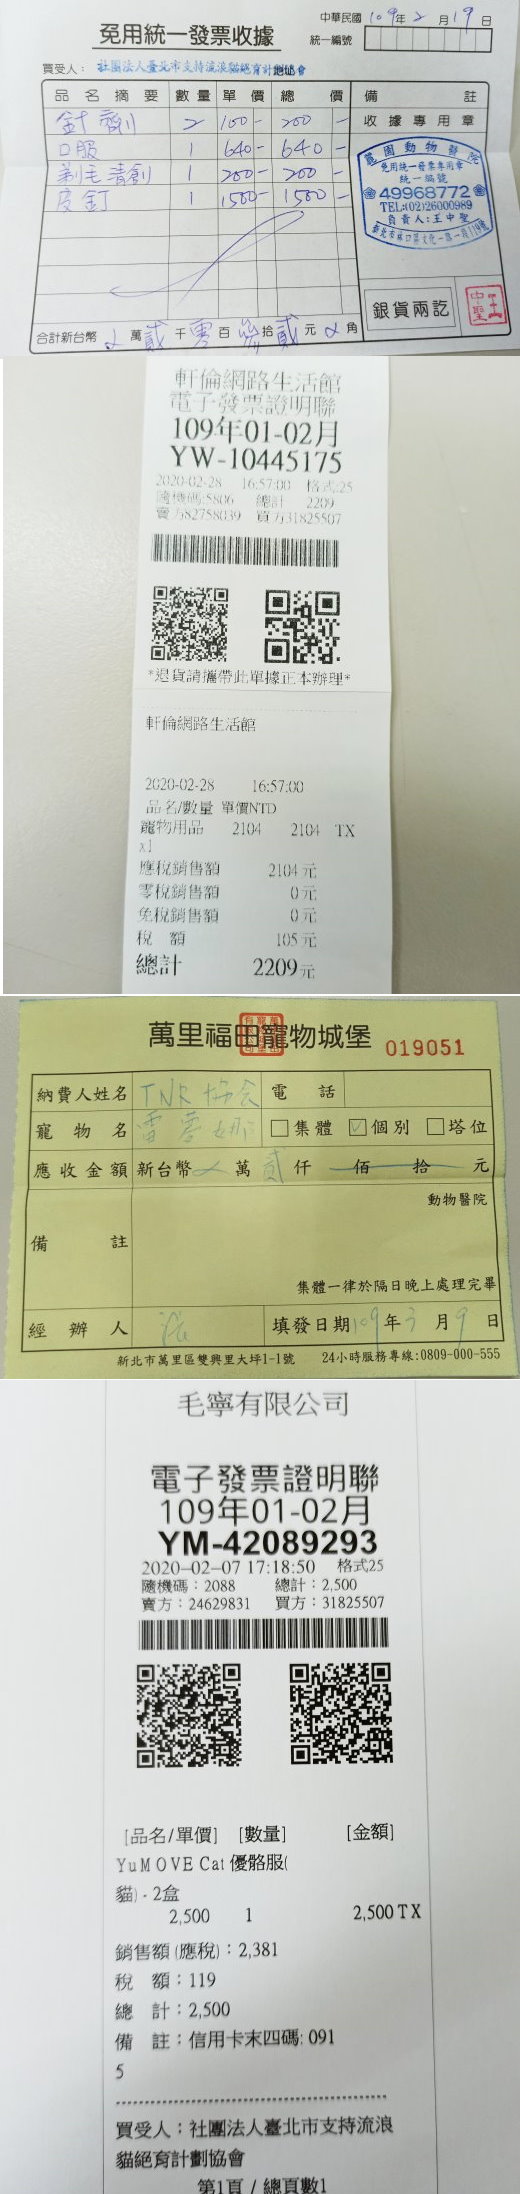 免用統一發票收據
中華民國 109年 2 月 19 日
統一編號
買受人： 社團法人臺北市支持流浪貓絕育計劃協會 地址
品名摘要 數量 單價 總價 備註
針劑 2 100- 200 - 收據專用章
口服 1 640- 640 -
剃毛清創 1 200- 200 -
皮釘 1 1500- 1500 -
動物醫院
免用統一發票專用章
統一編號
49968772
TEL:(02)26000989
負責人:王中聖
新北市林口區文化一路一段119號
銀貨兩訖
合計新台幣 萬 貳 千 零 百 拾 貳 元 角
軒倫網路生活館
電子發票證明聯
109年01-02月
YW-10445175
2020-02-28 16:57:00 格式:25
隨機碼:5806 總計 2209
賣方82758039 買方31825507
*退貨請攜帶此單據正本辦理*
軒倫網路生活館
2020-02-28 16:57:00
品名/數量 單價NTD
寵物用品 2104 2104 TX
x1
應稅銷售額 2104 元
零稅銷售額 0元
免稅銷售額 0元
稅 額 105 元
總計 2209元
萬里福田寵物城堡 019051
納費人姓名 TNR協會 電話
寵物名 雷蒙娜 □集體 ☑個別 □塔位
應收金額 新台幣 萬 貳 仟 佰 拾 元
動物醫院
備註
集體一律於隔日晚上處理完畢
經辦人 填發日期 109 年 3 月 9 日
新北市萬里區雙興里大坪1-1號 24小時服務專線:0809-000-555
毛寧有限公司
電子發票證明聯
109年01-02月
YM-42089293
2020-02-07 17:18:50 格式25
隨機碼：2088 總計：2,500
賣方：24629831 買方：31825507
[品名/單價] [數量] [金額]
YuMOVE Cat 優骼服(
貓) - 2盒
2,500 1 2,500 TX
銷售額 (應稅)：2,381
稅 額：119
總 計：2,500
備 註：信用卡末四碼: 091
5
買受人：社團法人臺北市支持流浪
貓絕育計劃協會
第1頁 / 總頁數1